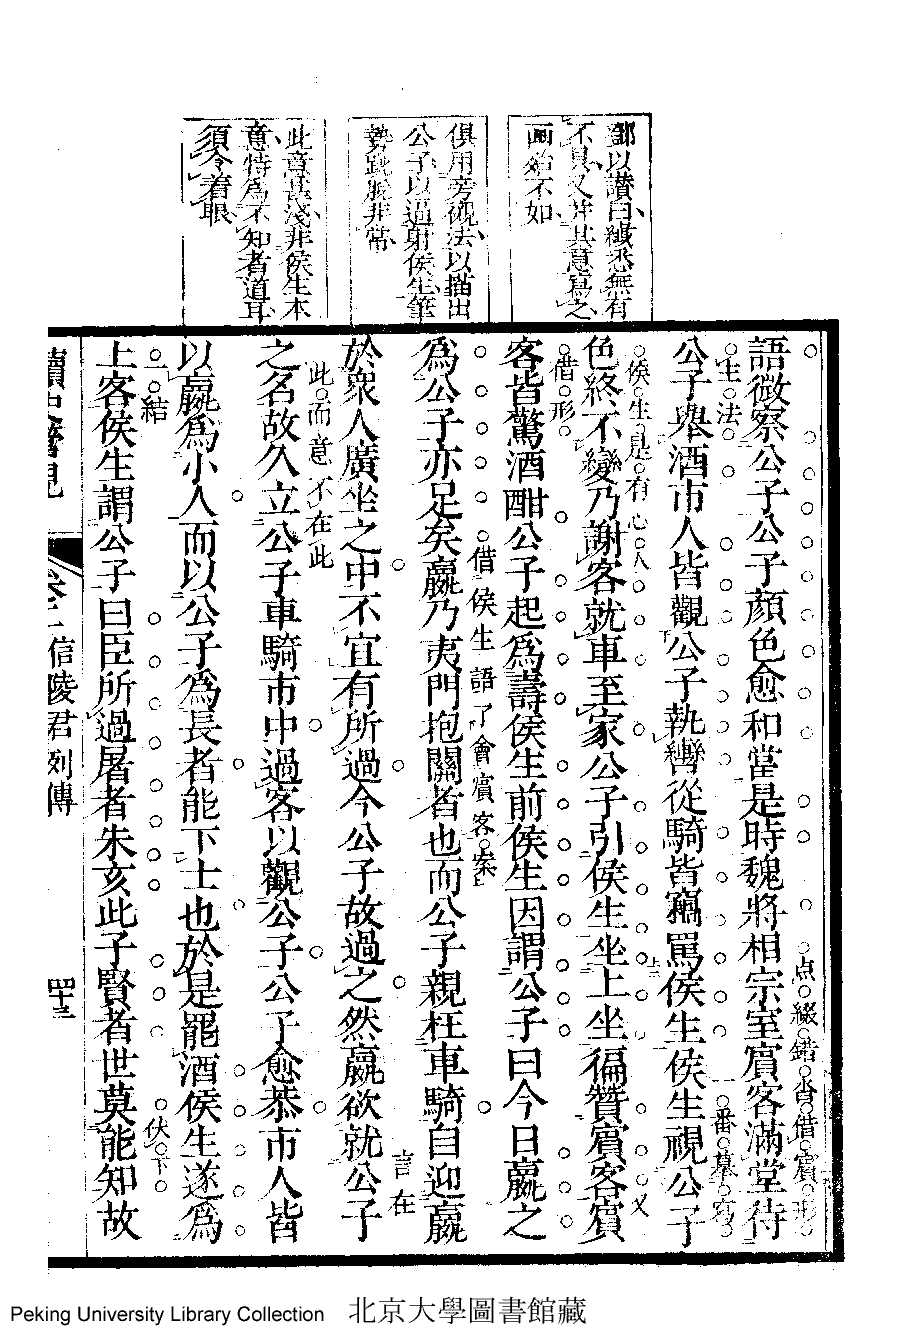 鄧以讚曰縝悉無有
不具又并其意寫之
画殆不如
俱用旁觀法以描出
公子以逼射侯生筆
勢跳脱非常
此意甚淺非侯生本
意特為不知者道耳
須令着眼
語微察公子公子顏色愈和當是時魏將相宗室賓客滿堂待
点綴錯
借賓形
主法
一番摹寫
公子舉酒市人皆觀公子執轡從騎皆竊罵侯生侯生視公子
侯生是有心人
又
色終不變乃謝客就車至家公子引侯生坐上坐徧贊賓客賓
借形
客皆驚酒酣公子起為壽侯生前侯生因謂公子曰今日嬴之
借侯生語了會賓客案
為公子亦足矣嬴乃夷門抱關者也而公子親枉車騎自迎嬴
言在
於衆人廣坐之中不宜有所過今公子故過之然嬴欲就公子
此而意不在此
之名故久立公子車騎市中過客以觀公子公子愈恭市人皆
以嬴為小人而以公子為長者能下士也於是罷酒侯生遂為
一結
伏下
上客侯生謂公子曰臣所過屠者朱亥此子賢者世莫能知故
卷二信陵君列傳
四十三
Peking University Library Collection 北京大學圖書館藏